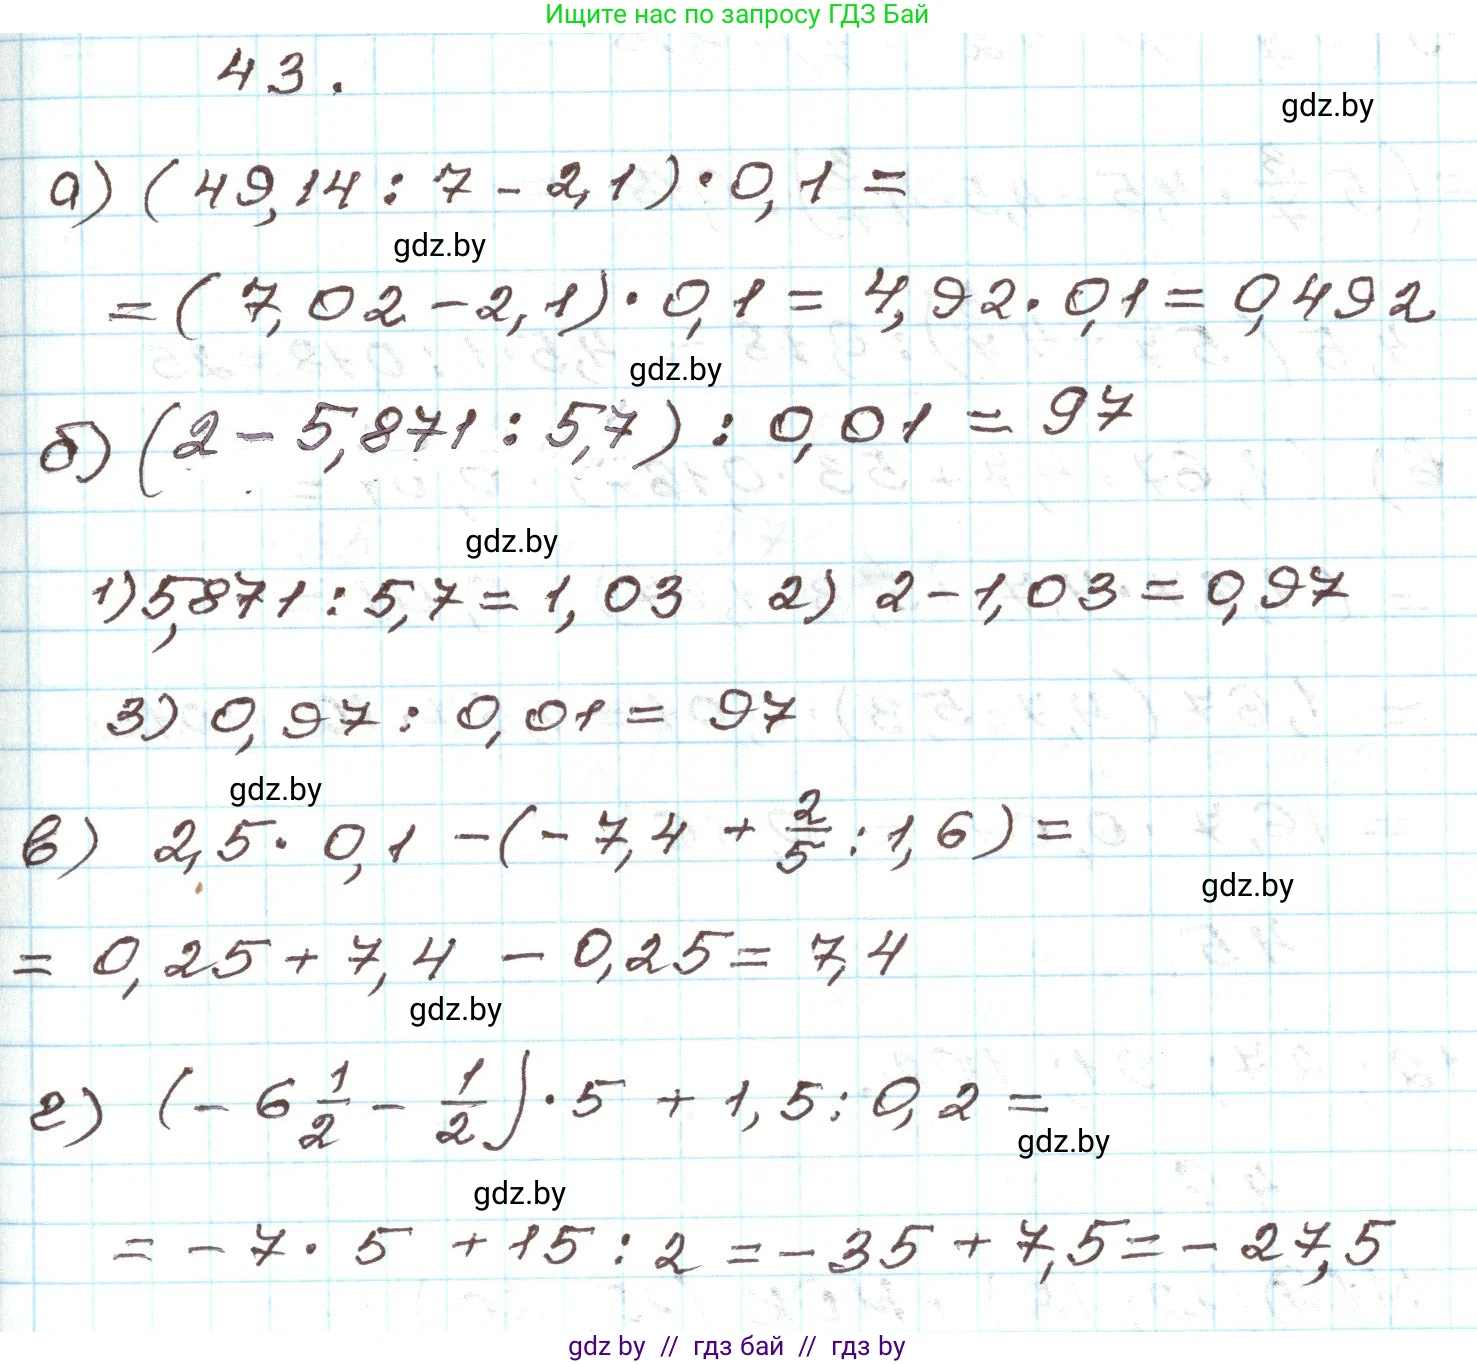 Ищите нас по запросу ГДЗ Бай
43.
gdz.by
а) (49,14 : 7 - 2,1) · 0,1 =
gdz.by
= (7,02 - 2,1) · 0,1 = 4,92 · 0,1 = 0,492
gdz.by
б) (2 - 5,871 : 5,7) : 0,01 = 97
gdz.by
1) 5,871 : 5,7 = 1,03 2) 2 - 1,03 = 0,97
3) 0,97 : 0,01 = 97
gdz.by
в) 2,5 · 0,1 - (- 7,4 + 2/5 : 1,6) =
gdz.by
= 0,25 + 7,4 - 0,25 = 7,4
gdz.by
г) (- 6 1/2 - 1/2) · 5 + 1,5 : 0,2 =
gdz.by
gdz.by
= - 7 · 5 + 15 : 2 = - 35 + 7,5 = - 27,5
gdz by // гдз бай // гдз by